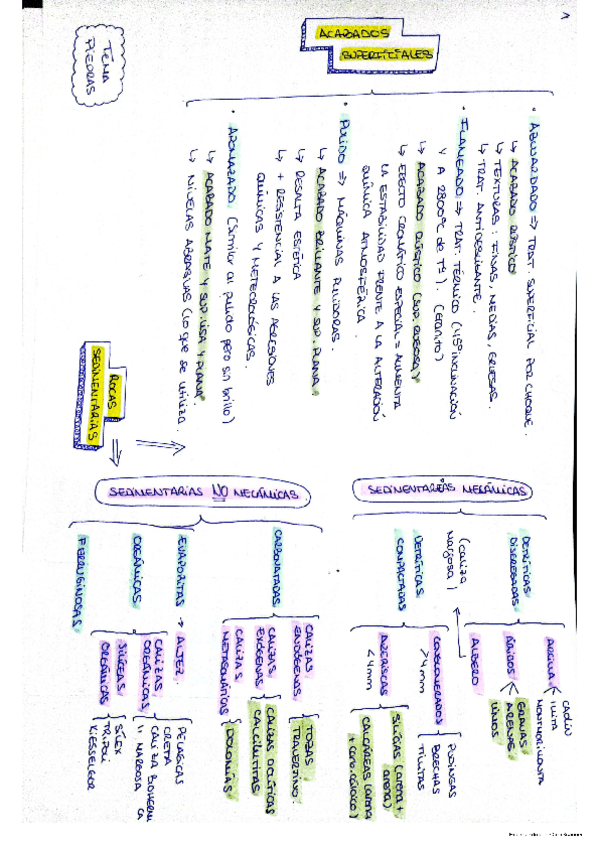 TEMA
PIEDRAS
ACABADOS
SUPERFICIALES
• ABUJARDADO => TRAT. SUPERFICIAL POR CHOQUE.
↳ ACABADO RÚSTICO
↳ TEXTURAS: FINAS, MEDIAS, GRUESAS.
↳ TRAT. ANTIDESLIZANTE.
• FLAMEADO => TRAT. TÉRMICO (45º INCLINACIÓN
Y A 2800ºC de Tª). (Granito)
↳ ACABADO RÚSTICO (SUP. RUGOSA)
↳ EFECTO CROMÁTICO ESPECIAL = AUMENTA
LA ESTABILIDAD FRENTE A LA ALTERACIÓN
QUÍMICA ATMOSFÉRICA.
• PULIDO => MÁQUINAS PULIDORAS.
↳ ACABADO BRILLANTE Y SUP. PLANA
↳ RESALTA ESTÉTICA
↳ + RESISTENCIA A LAS AGRESIONES
QUÍMICAS Y METEOROLÓGICAS.
• APOMAZADO (Similar al pulido pero sin brillo)
↳ ACABADO MATE Y SUP. LISA Y PLANA
↳ MUELAS ABRASIVAS (lo que se utiliza.
ROCAS
SEDIMENTARIAS
SEDIMENTARIAS MECÁNICAS
DETRÍTICAS
DISGREGADAS
ARCILLA
CAOLÍN
ILLITA
MONTMORILLONITA
ÁRIDOS
GRAVAS
ARENAS
LIMOS
ALBERO
(caliza
margosa)
DETRÍTICAS
COMPACTADAS
CONGLOMERADOS
>4mm
PUDINGAS
BRECHAS
TILLITAS
ARENISCAS
<4mm
SILÍCEAS (arena +
arena)
CALCÁREAS (arena
+ carb. cálcico)
SEDIMENTARIAS NO MECÁNICAS
CARBONATADAS
CALIZAS
ENDÓGENAS
TOBAS
TRAVERTINO.
CALIZAS
EXÓGENAS
CALIZAS OOLÍTICAS
CALCILUTITAS
CALIZAS
METASOMÁTICAS
DOLOMÍAS
EVAPORITAS → ALJEZ.
ORGÁNICAS
CALIZAS
ORGÁNICAS
PELÁGICAS
CRETA
CALIZA BIOHERMICA
" MARGOSA
SILÍCEAS
ORGÁNICAS
SÍLEX
TRIPOLI
KIESSELGUR
FERRUGINOSAS